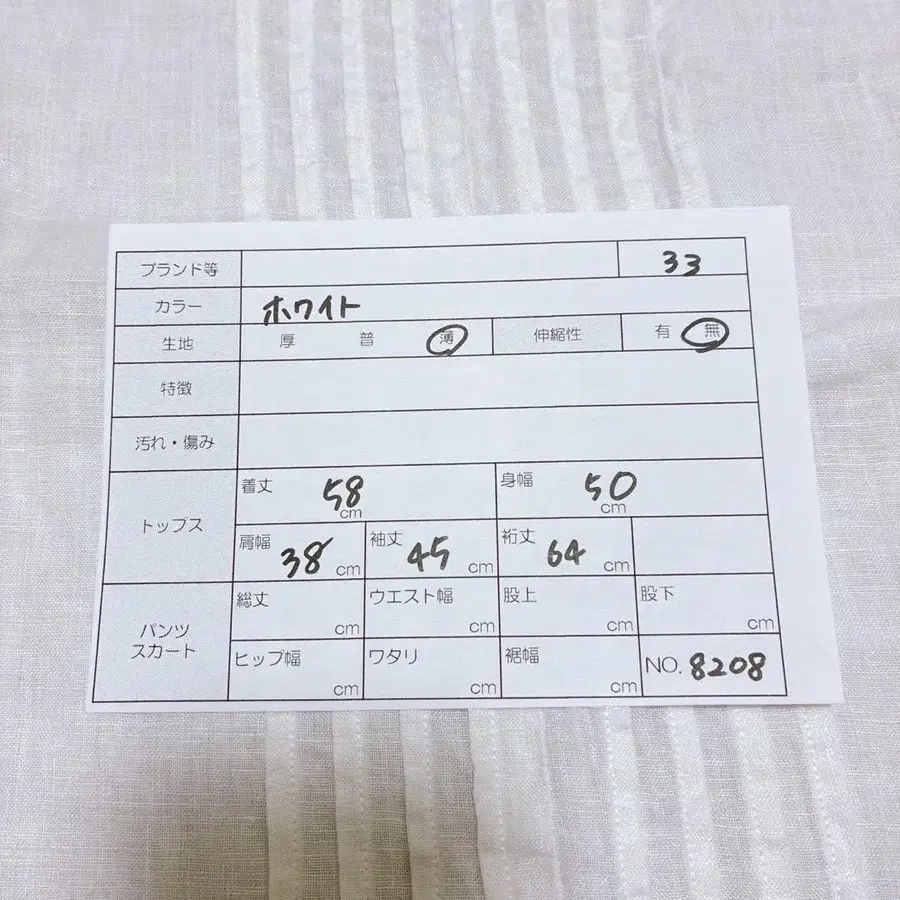 ブランド等 33
カラー ホワイト
生地 厚 普 薄 伸縮性 有 無
特徴
汚れ・傷み
トップス 着丈 58 cm 身幅 50 cm
肩幅 38 cm 袖丈 45 cm 裄丈 64 cm
パンツ スカート 総丈 cm ウエスト幅 cm 股上 cm 股下 cm
ヒップ幅 cm ワタリ cm 裾幅 cm NO. 8208